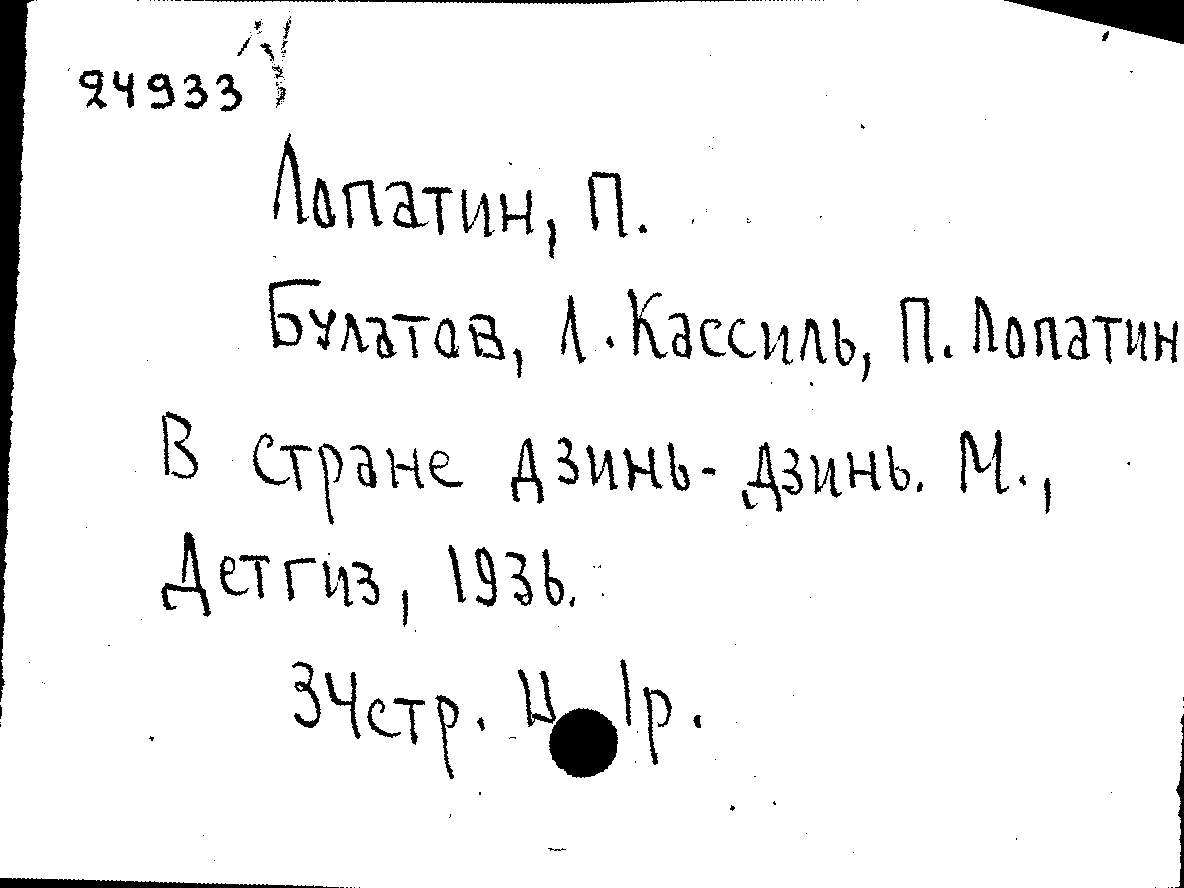 24933
Лопатин, П.
Булатов, Л. Кассиль, П. Лопатин
В стране дзинь-дзинь. М.,
Детгиз, 1936.
34стр. Ц 1р.